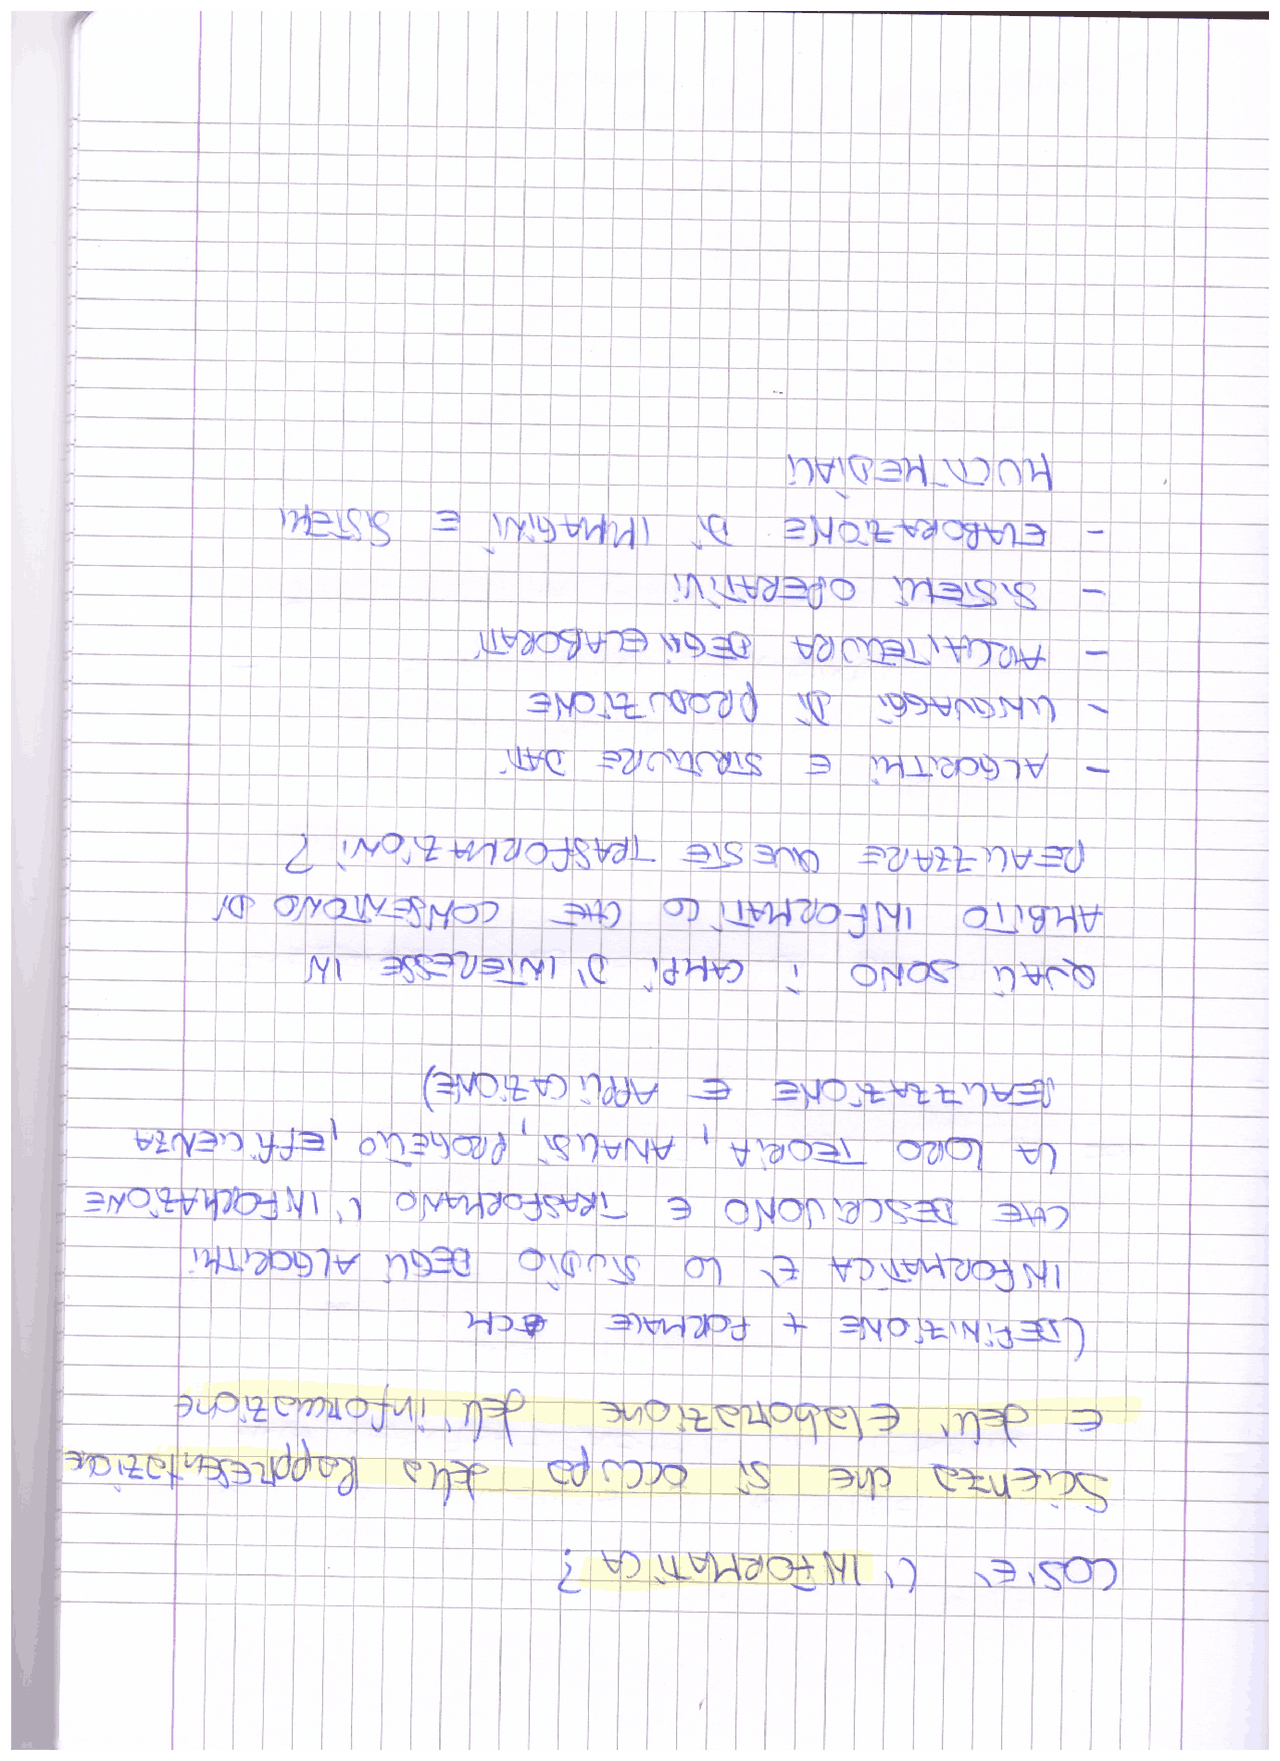 COS'E' L'INFORMATICA?
Scienza che si occupa della Rappresentazione
E dell'Elaborazione dell'informazione
(DEFINIZIONE + FORMALE
INFORMATICA E' LO STUDIO DEGLI ALGORITMI
CHE DESCRIVONO E TRASFORMANO L'INFORMAZIONE
LA LORO TEORIA, ANALISI, PROGETTO, EFFICIENZA
REALIZZAZIONE E APPLICAZIONE)
QUALI SONO i CAMPI D'INTERESSE IN
AMBITO INFORMATICO CHE CONSENTONO DI
REALIZZARE QUESTE TRASFORMAZIONI?
- ALGORITMI E STRUTTURE DATI
- LINGUAGGI DI PRODUZIONE
- ARCHITETTURA DEGLI ELABORATI
- SISTEMI OPERATIVI
- ELABORAZIONE DI IMMAGINI E SISTEMI
MULTIMEDIALI